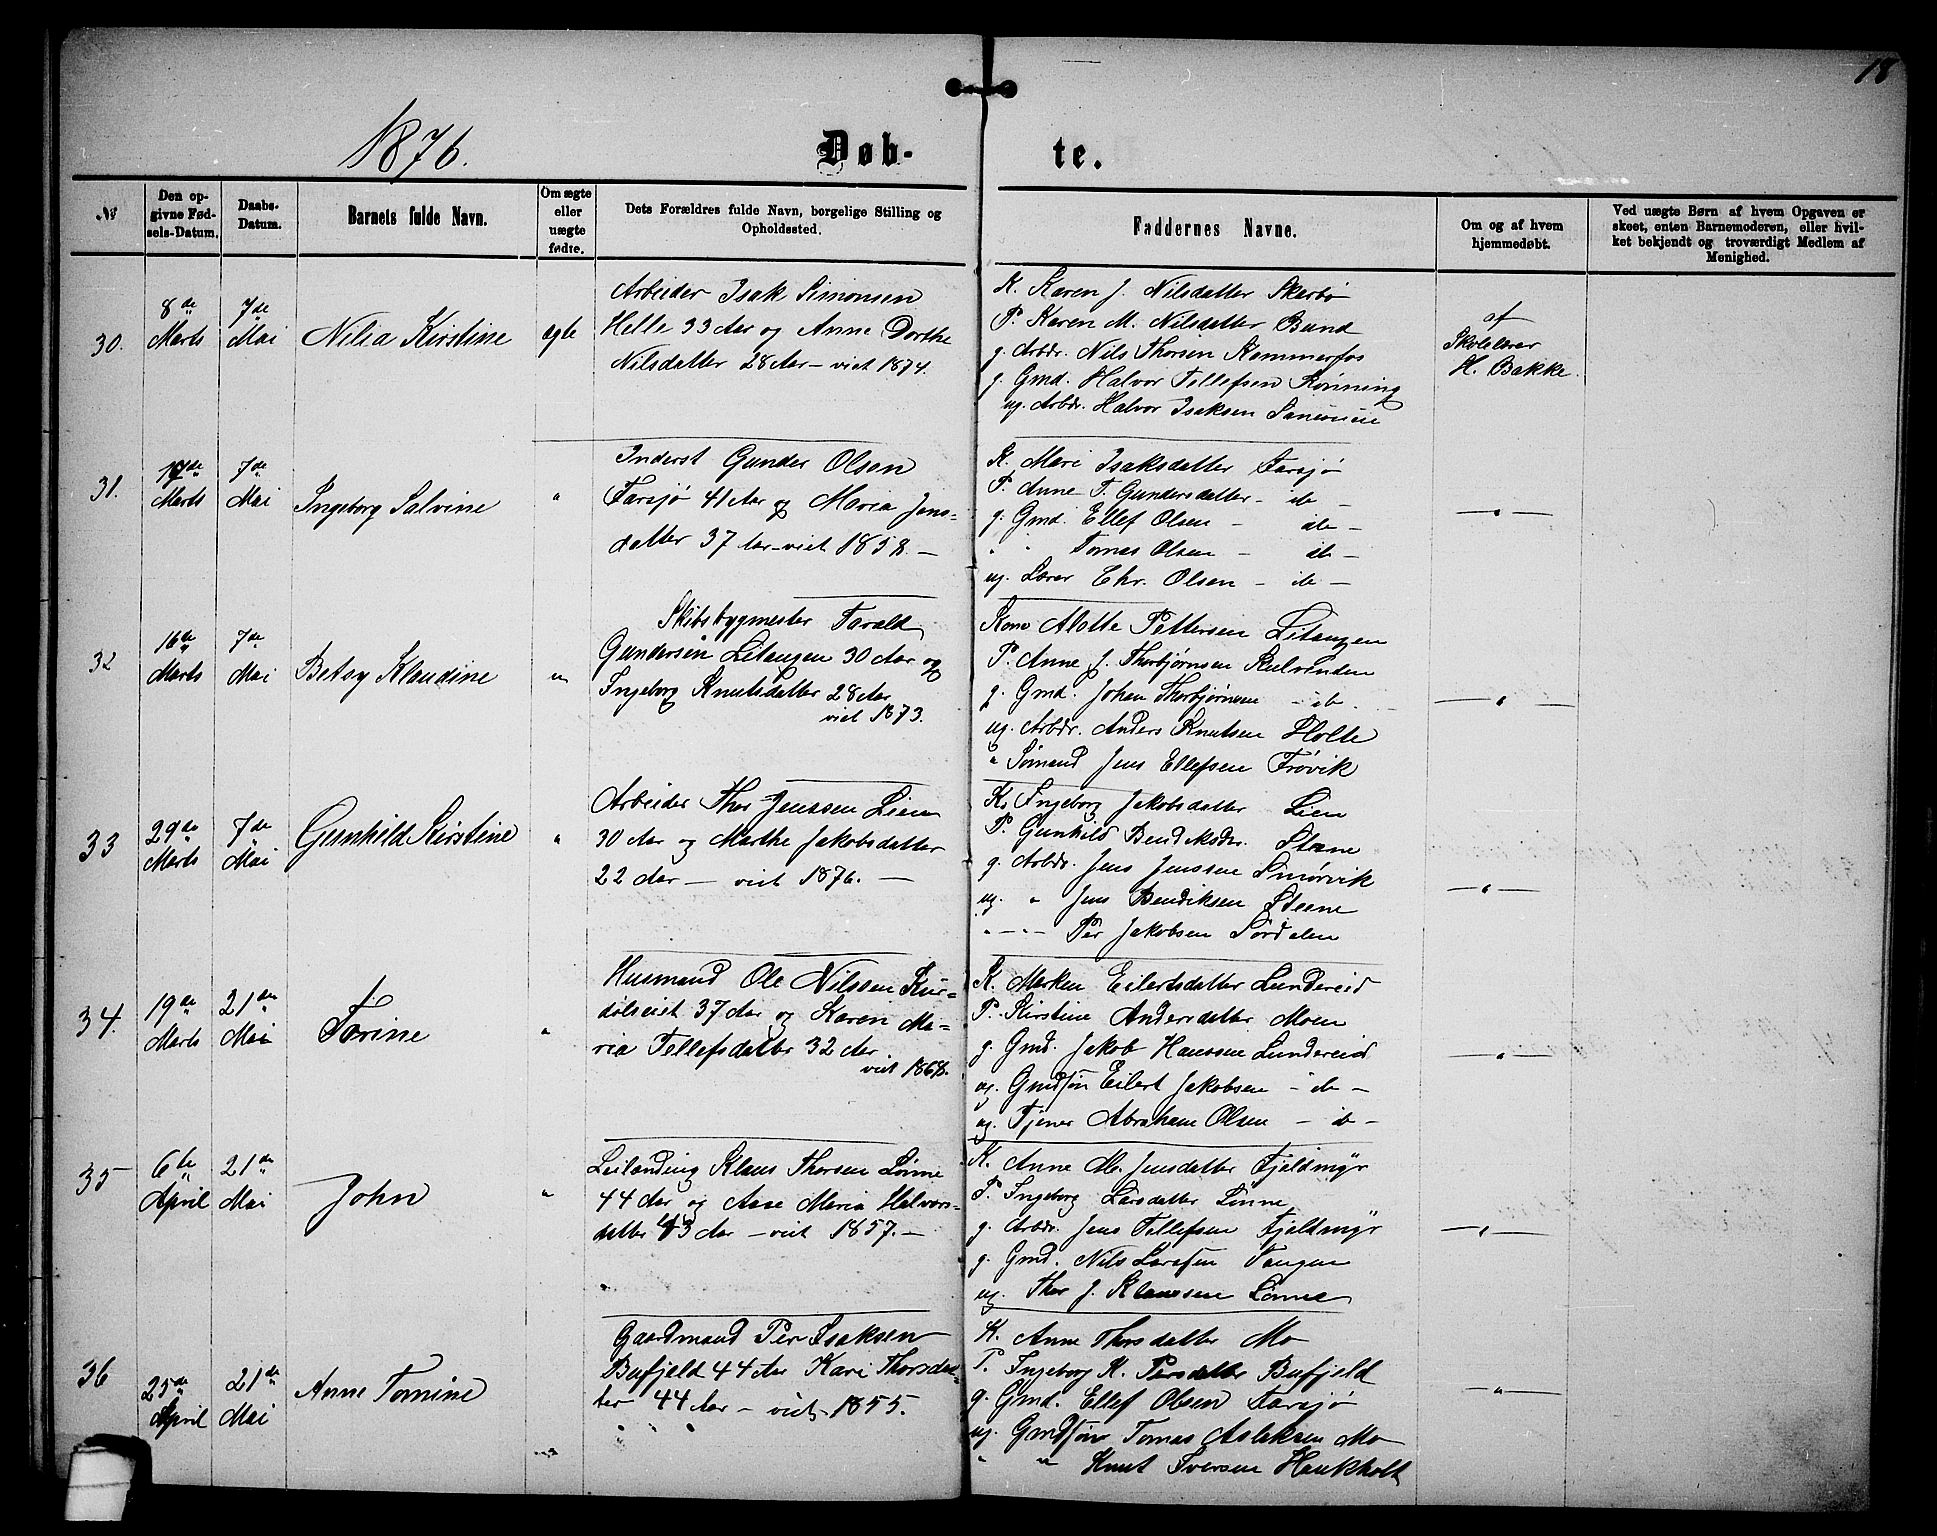 18
1876.
Døb-
te.
№
Den op-
givne Fød-
sels-Datum.
Daabs-
Datum.
Barnets fulde Navn.
Om ægte
eller
uægte
fødte.
Dets Forældres fulde Navn, borgelige Stilling og
Opholdssted.
Faddernes Navne.
Om og af hvem
hjemmedøbt.
Ved uægte Børn af hvem Opgaven er
skeet, enten Barnemoderen, eller hvil-
ket bekjendt og troværdigt Medlem af
Menighed.
30.
8de
Marts
7de
Mai
Nilia Kirstine
ægte
Arbeider Isak Simonsen
Helle 33 Aar og Anne Dorthe
Nilsdatter 28 Aar – viet 1874.
K. Karen J. Nilsdatter Skarbø
P. Karen M. Nilsdatter Bund
g. Arbdr. Nils Thorsen Kammerfos
g. Gmd. Halvor Tellefsen Rønning
ug. Arbdr. Halvor Isaksen
af
Skolelærer
H. Bakke.
31.
17de
Marts
7de
Mai
Ingeborg Salvine
"
Inderst Gunder Olsen
Farsjø 41 Aar og Maria Jens-
datter 37 Aar – viet 1858. –
K. Mari Isaksdatter Farsjø
P. Anne T. Gundersdatter – ib –
g. Gmd. Ellef Olsen – ib –
" " Tomas Olsen – ib –
ug. Lærer Chr. Olsen – ib –
— " —
32
16de
Marts
7de
Mai
Betsy Klaudine
"
Skibsbygmester Tarald
Gundersen Litangen 30 Aar og
Ingeborg Knutsdatter 28 Aar
viet 1873.
Kone Alotte Pettersen Litangen
P. Anne J. Thorbjørnsen
g. Gmd. Johan Thorbjørnsen – ib. –
ug. Arbdr. Anders Knutsen Holte
" Sømand Jens Ellefsen Frøvik
— " —
33
29de
Marts
7de
Mai
Gunhild Kirstine
"
Arbeider Thor Jenssen Lien
30 Aar og Marthe Jakobsdatter
22 Aar — viet 1876. —
K. Ingeborg Jakobsdatter Lien
P. Gunhild Bendiksdr. Steane
g. Arbdr. Jens Jenssen Smørvik
ug. " Jens Bendiksen Steane
" – " – Per Jakobsen Sørdalen
— " —
34.
19de
Marts
21de
Mai
Torine
"
Husmand Ole Nilssen Kur-
dølseiet 37 Aar og Karen Ma-
ria Tellefsdatter 32 Aar
viet 1868.
K. Marken Eilertsdatter Lundereid
P. Kirstine Andersdatter Moen
g. Gmd. Jakob Hanssen Lundereid
ug. Gmdsøn Eilert Jakobsen – ib –
ug. Tjener Abraham Olsen – ib –
— " —
35
6te
April
21de
Mai
John
"
Leilænding Klaus Thorsen Lønne
44 Aar og Aase Maria Halvors-
datter 43 Aar – viet 1857. –
K. Anne M. Jensdatter Fjeldmyr
P. Ingeborg Larsdatter Lønne
g. Arbdr. Jens Tellefsen Fjeldmyr
g. Gmd. Nils Larsen Tangen
ug. Thor J. Klaussen Lønne
— " —
36
25de
April
21de
Mai
Anne Tomine
Gaardmand Per Isaksen
Bufjeld 44 Aar Kari Thorsdat-
ter 44 Aar – viet 1855.
K. Anne Thorsdatter Mo
P. Ingeborg K. Persdatter Bufjeld
g. Gmd. Ellef Olsen Farsjø
ug. Gmdsøn Tomas Aslaksen Mo
" " Knut Iversen Haukholt
— " —